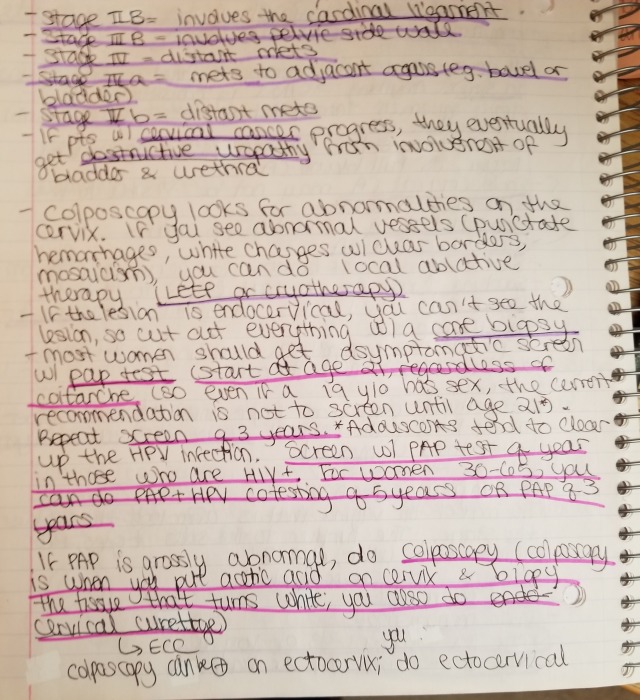 - Stage II B = involves the cardinal ligament
- Stage III B = involves pelvic side wall
- Stage IV = distant mets
- Stage IV a = mets to adjacent organs (eg. bowel or
bladder)
- Stage IV b = distant mets
- If pts w/ cervical cancer progress, they eventually
get obstructive uropathy from involvement of
bladder & urethra
- Colposcopy looks for abnormalities on the
cervix. If you see abnormal vessels (punctate
hemorrhages, white changes w/ clear borders,
mosaicism), you can do local ablative
therapy (LEEP or cryotherapy)
- If the lesion is endocervical, you can't see the
lesion, so cut out everything w/ a cone biopsy
- most women should get asymptomatic screen
w/ pap test (start at age 21, regardless of
coitarche (so even if a 19 y/o has sex, the current
recommendation is not to screen until age 21).
Repeat screen q 3 years. *Adolescents tend to clear
up the HPV infection. Screen w/ PAP test q year
in those who are HIV+. For women 30-65, you
can do PAP + HPV cotesting q 5 years OR PAP q 3
years
If PAP is grossly abnormal, do colposcopy (colposcopy
is when you put acetic acid on cervix & biopy
the tissue that turns white; you also do endo-
cervical curettage)
↳ ECC
you
colposcopy on ectocervix; do ectocervical